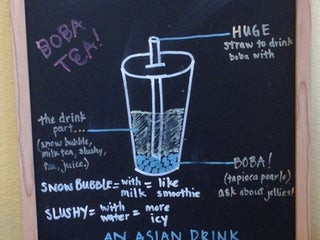 BOBA
TEA!
HUGE
straw to drink
boba with
the drink
part...
(snow bubble,
milk tea, slushy,
tea, juice.)
BOBA!
(tapioca pearls)
ask about jellies!
SNOW BUBBLE = with milk = like smoothie
SLUSHY = with water = more icy
AN ASIAN DRINK